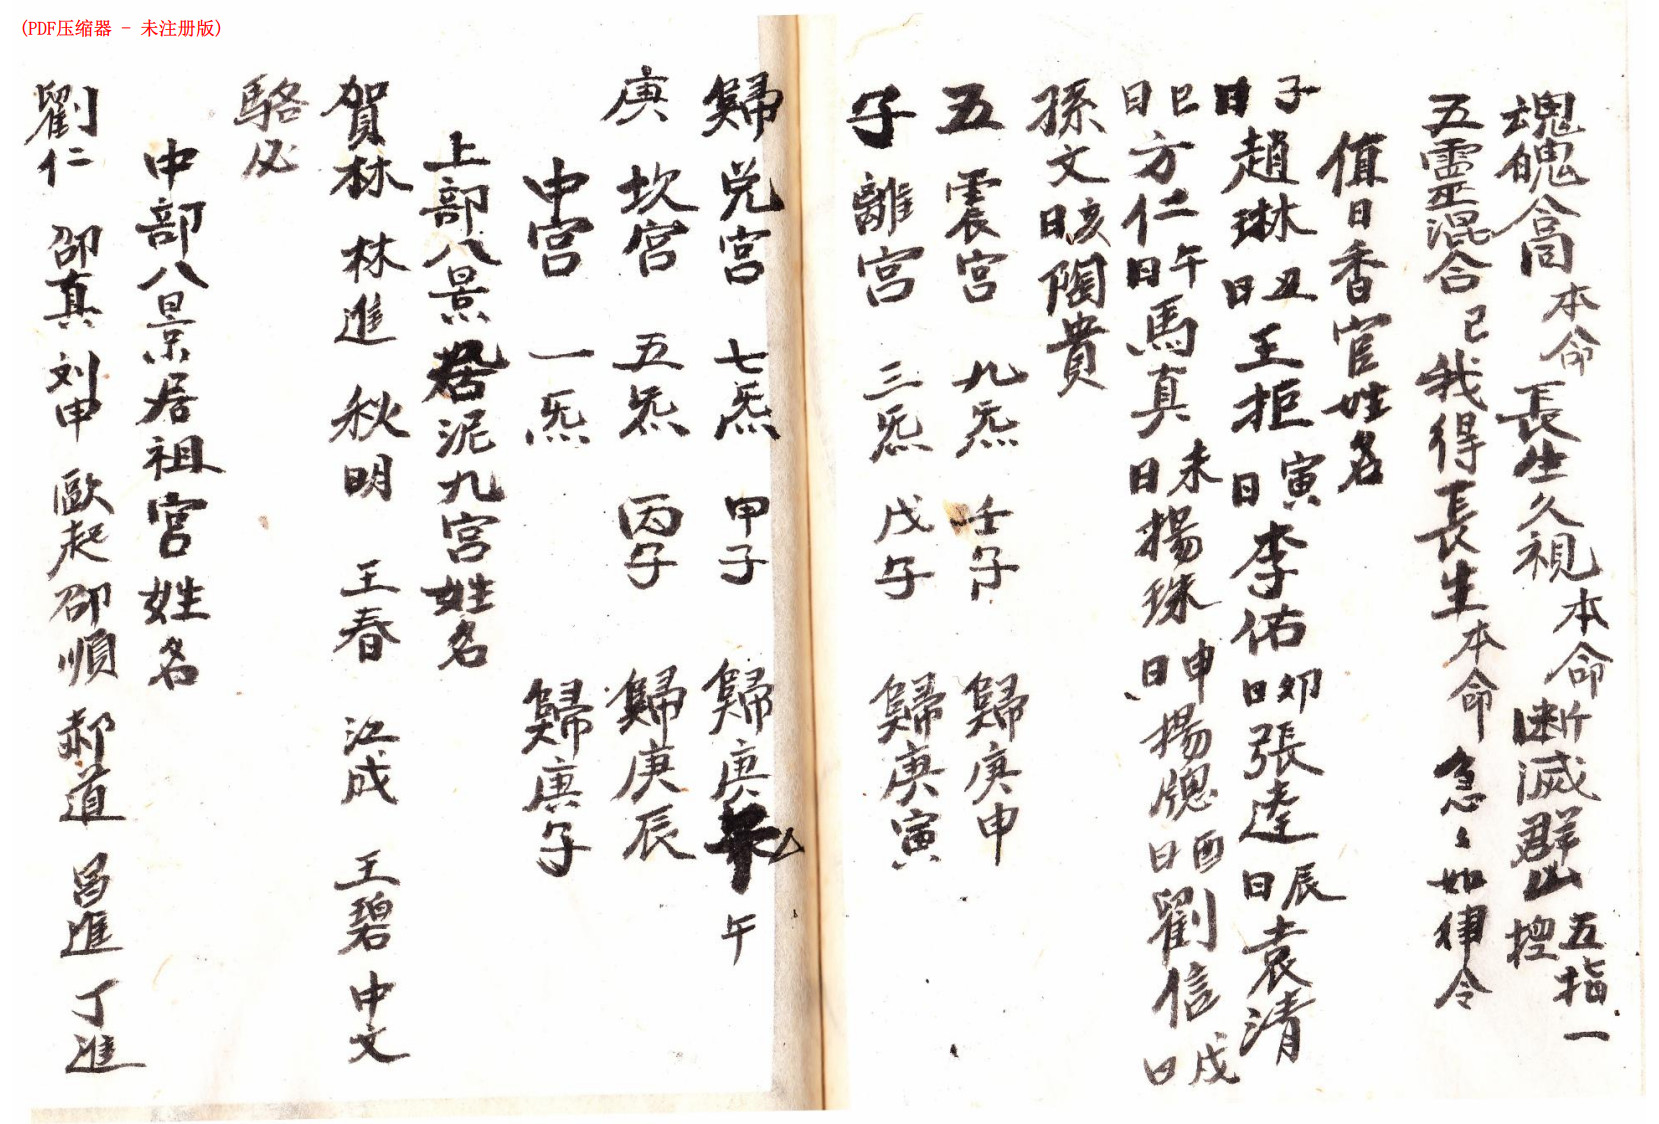 (PDF压缩器 - 未注册版)
魂魄合同 本命 長生久視 本命 断滅群凶 五指一控
五靈混合 己我得長生 本命 急〻如律令
值日香官姓名
子日趙琳 丑日王拒 寅日李佑 卯日張逵 辰日袁清
巳日方仁 午日馬真 未日揚珠 申日揚 酉日劉信 戌日
孫文 亥日陶貴
五 震宫 九炁 壬子 歸庚申
子 離宫 三炁 戊子 歸庚寅
歸 兑宫 七炁 甲子 歸庚午
庚 坎宫 五炁 丙子 歸庚辰
中宫 一炁 歸庚子
上部八景居泥九宫姓名
賀林 林進 秋明 王春 江成 王碧 中文
駱必
中部八景居祖宫姓名
劉仁 邵真 刘申 歐起 邵順 郝道 昌進 丁進